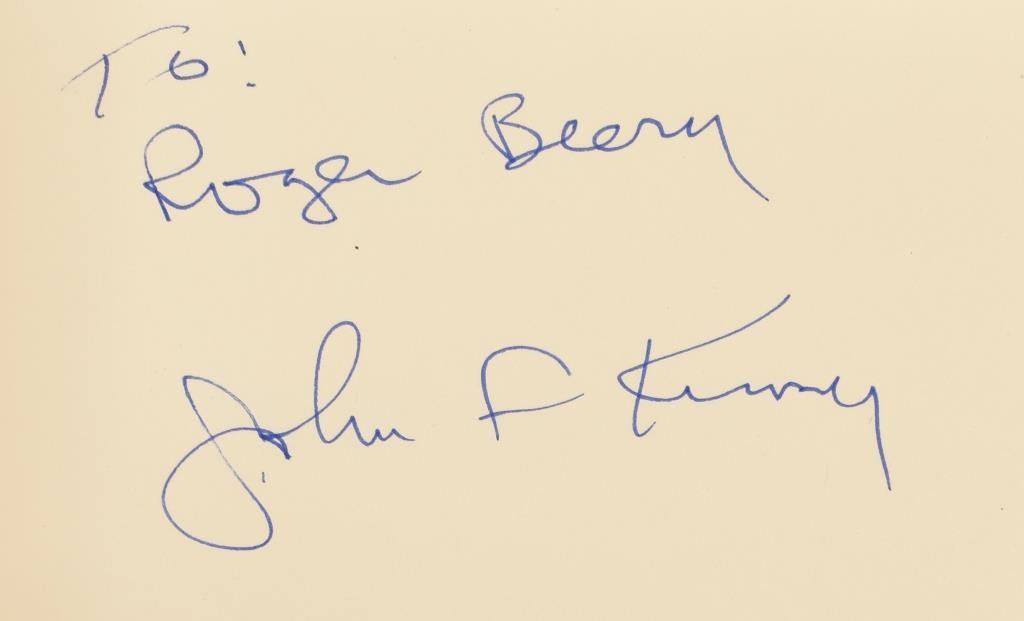 To:
Roger Beery
John F Kennedy